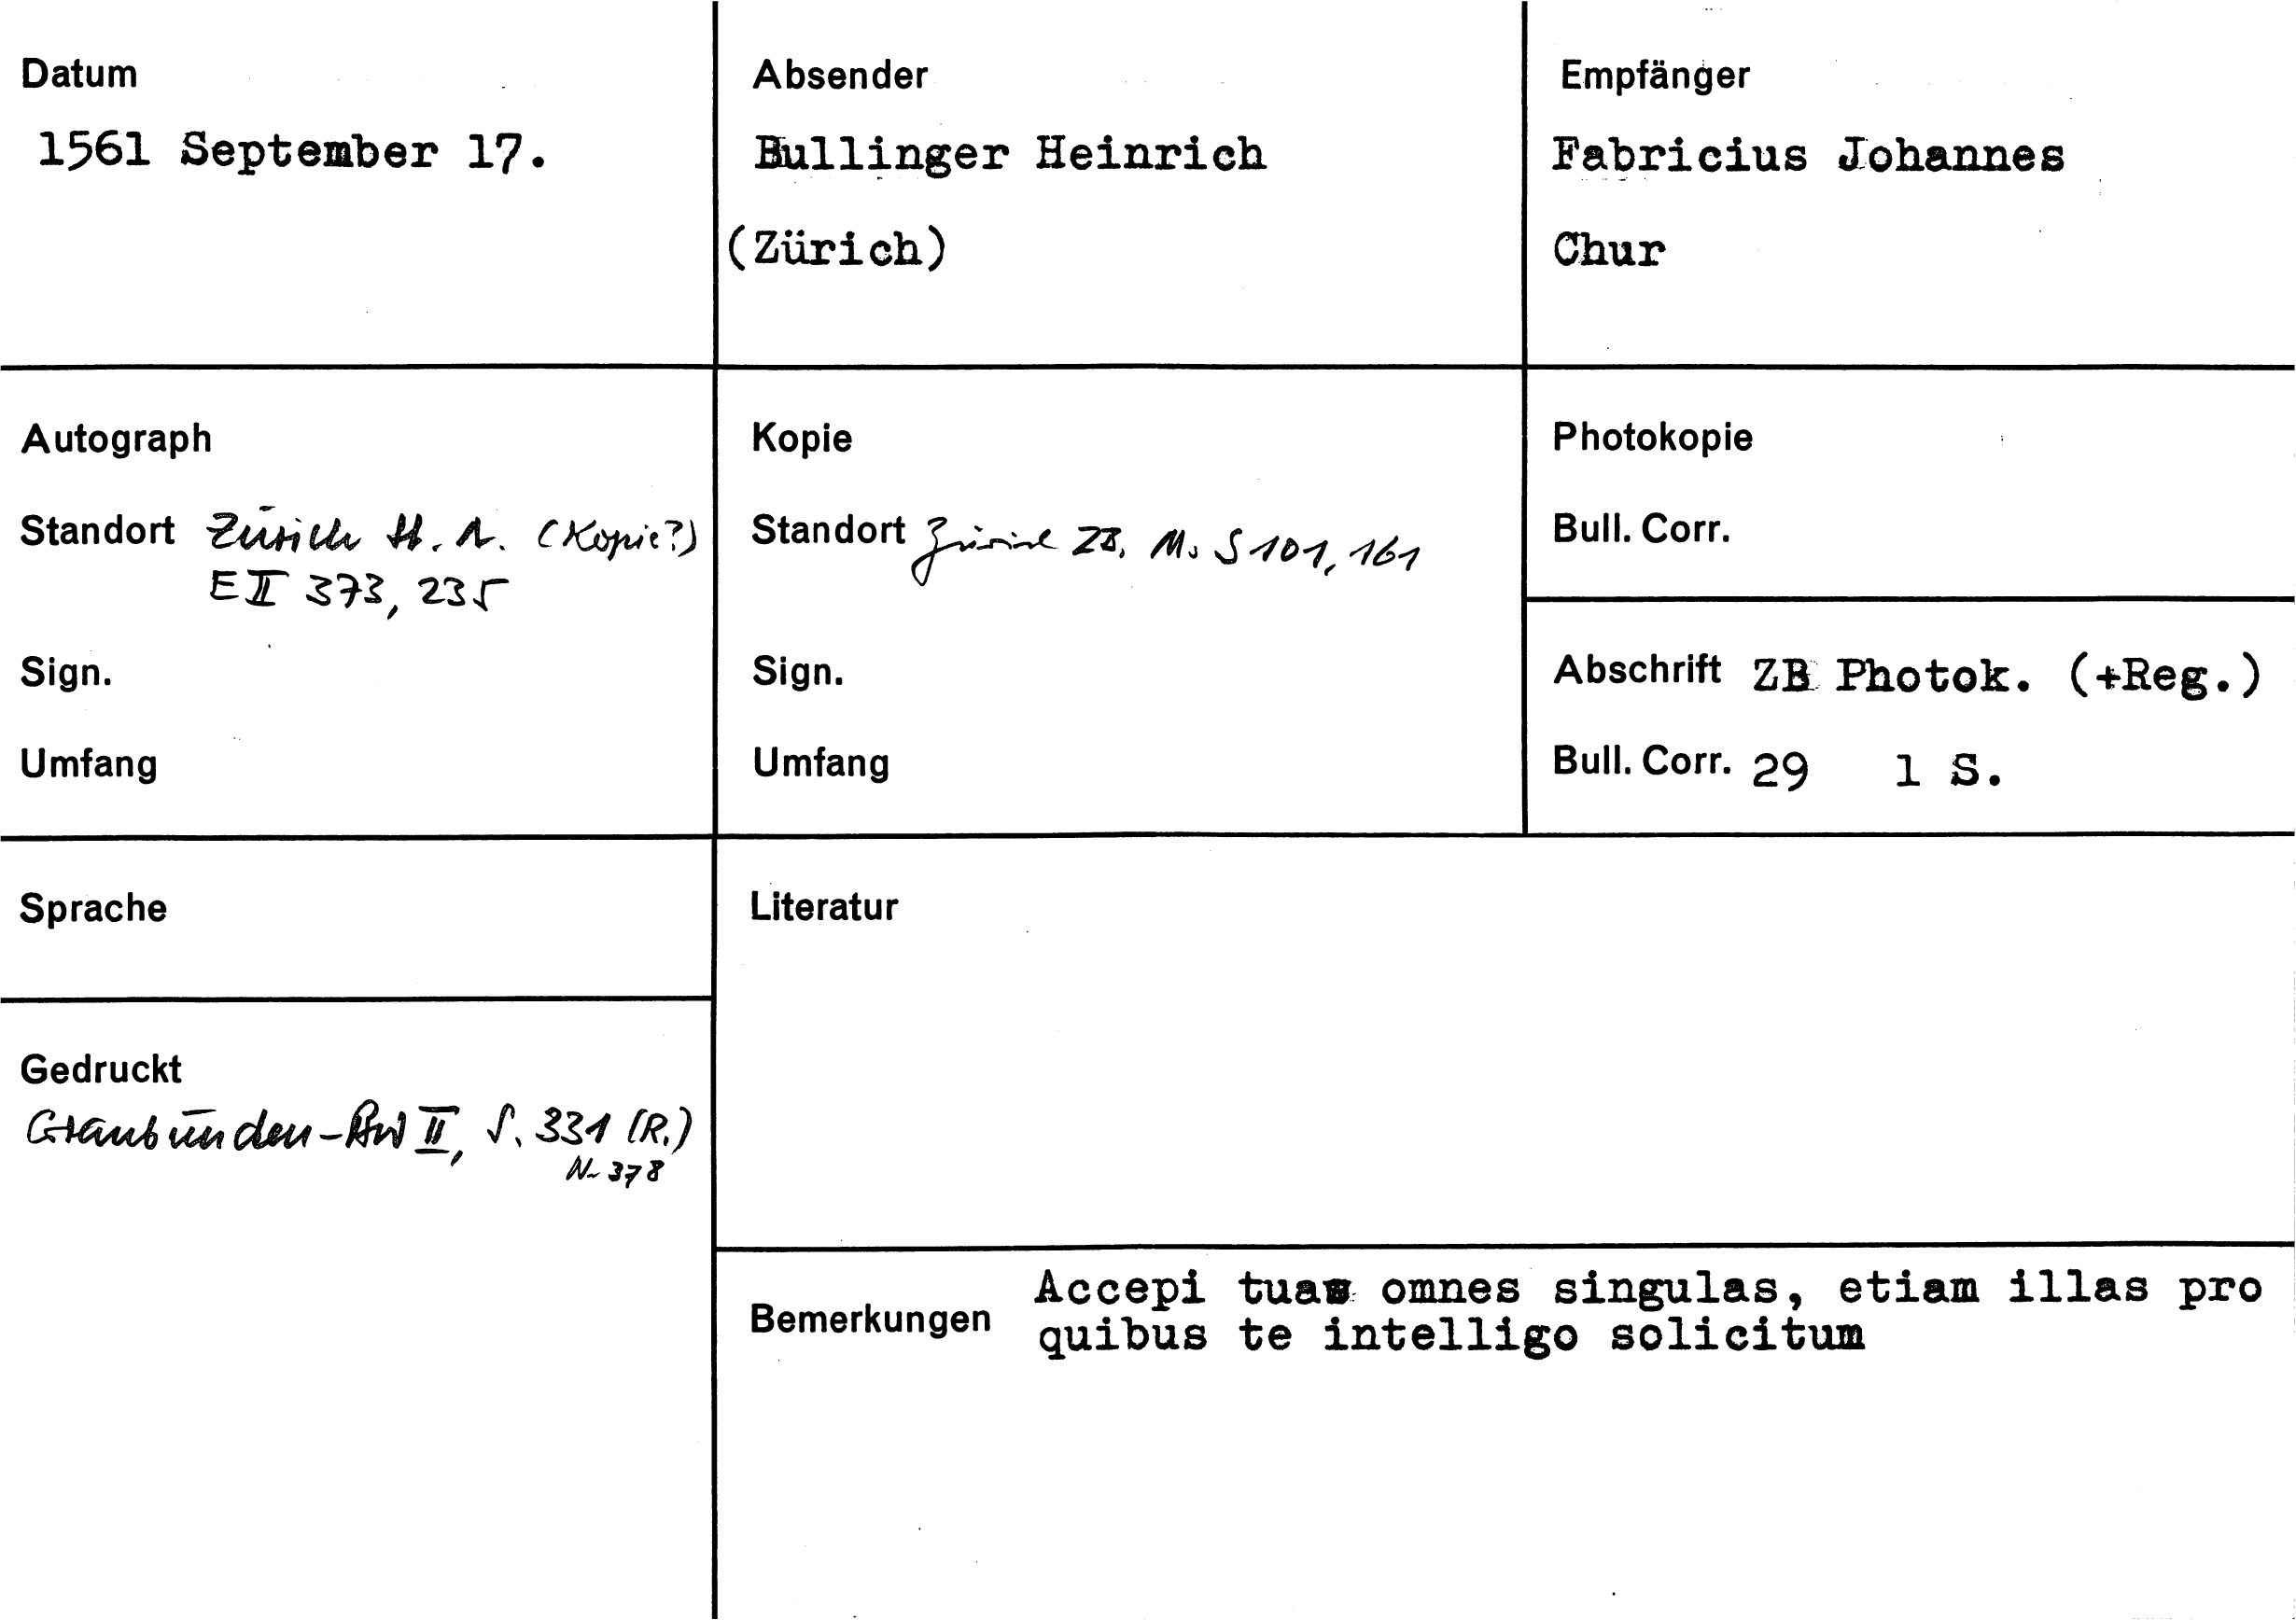 Datum
1561 September 17.
Absender
Bullinger Heinrich
(Zürich)
Empfänger
Fabricius Johannes
Chur
Autograph
Standort Zürich St. A. (Kopie?)
E II 373, 235
Sign.
Umfang
Kopie
Standort Zürich ZB, Ms S 101, 161
Sign.
Umfang
Photokopie
Bull. Corr.
Abschrift ZB Photok. (+Reg.)
Bull. Corr. 29 1 S.
Sprache
Literatur
Gedruckt
Graubünden-BW II, S. 331 (R.)
Nr 378
Bemerkungen Accepi tuas omnes singulas, etiam illas pro
quibus te intelligo solicitum